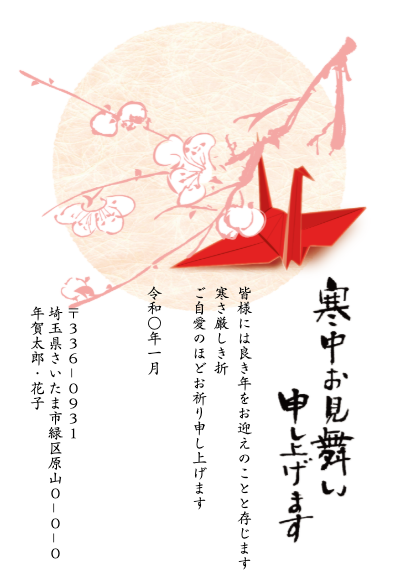 寒中お見舞い
申し上げます
皆様には良き年をお迎えのことと存じます
寒さ厳しき折
ご自愛のほどお祈り申し上げます
令和〇年一月
〒336-0931
埼玉県さいたま市緑区原山0-0-0
年賀太郎・花子